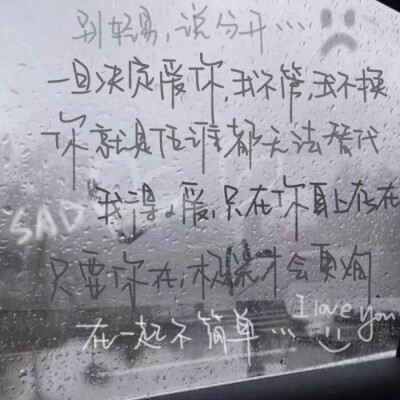 别轻易,说分开…
一旦决定爱你,我不管,我不换
你就是任谁都无法替代
SAD
我得爱,只在你身上存在
只要你在,极光才会更绚
I love you
在一起不简单…